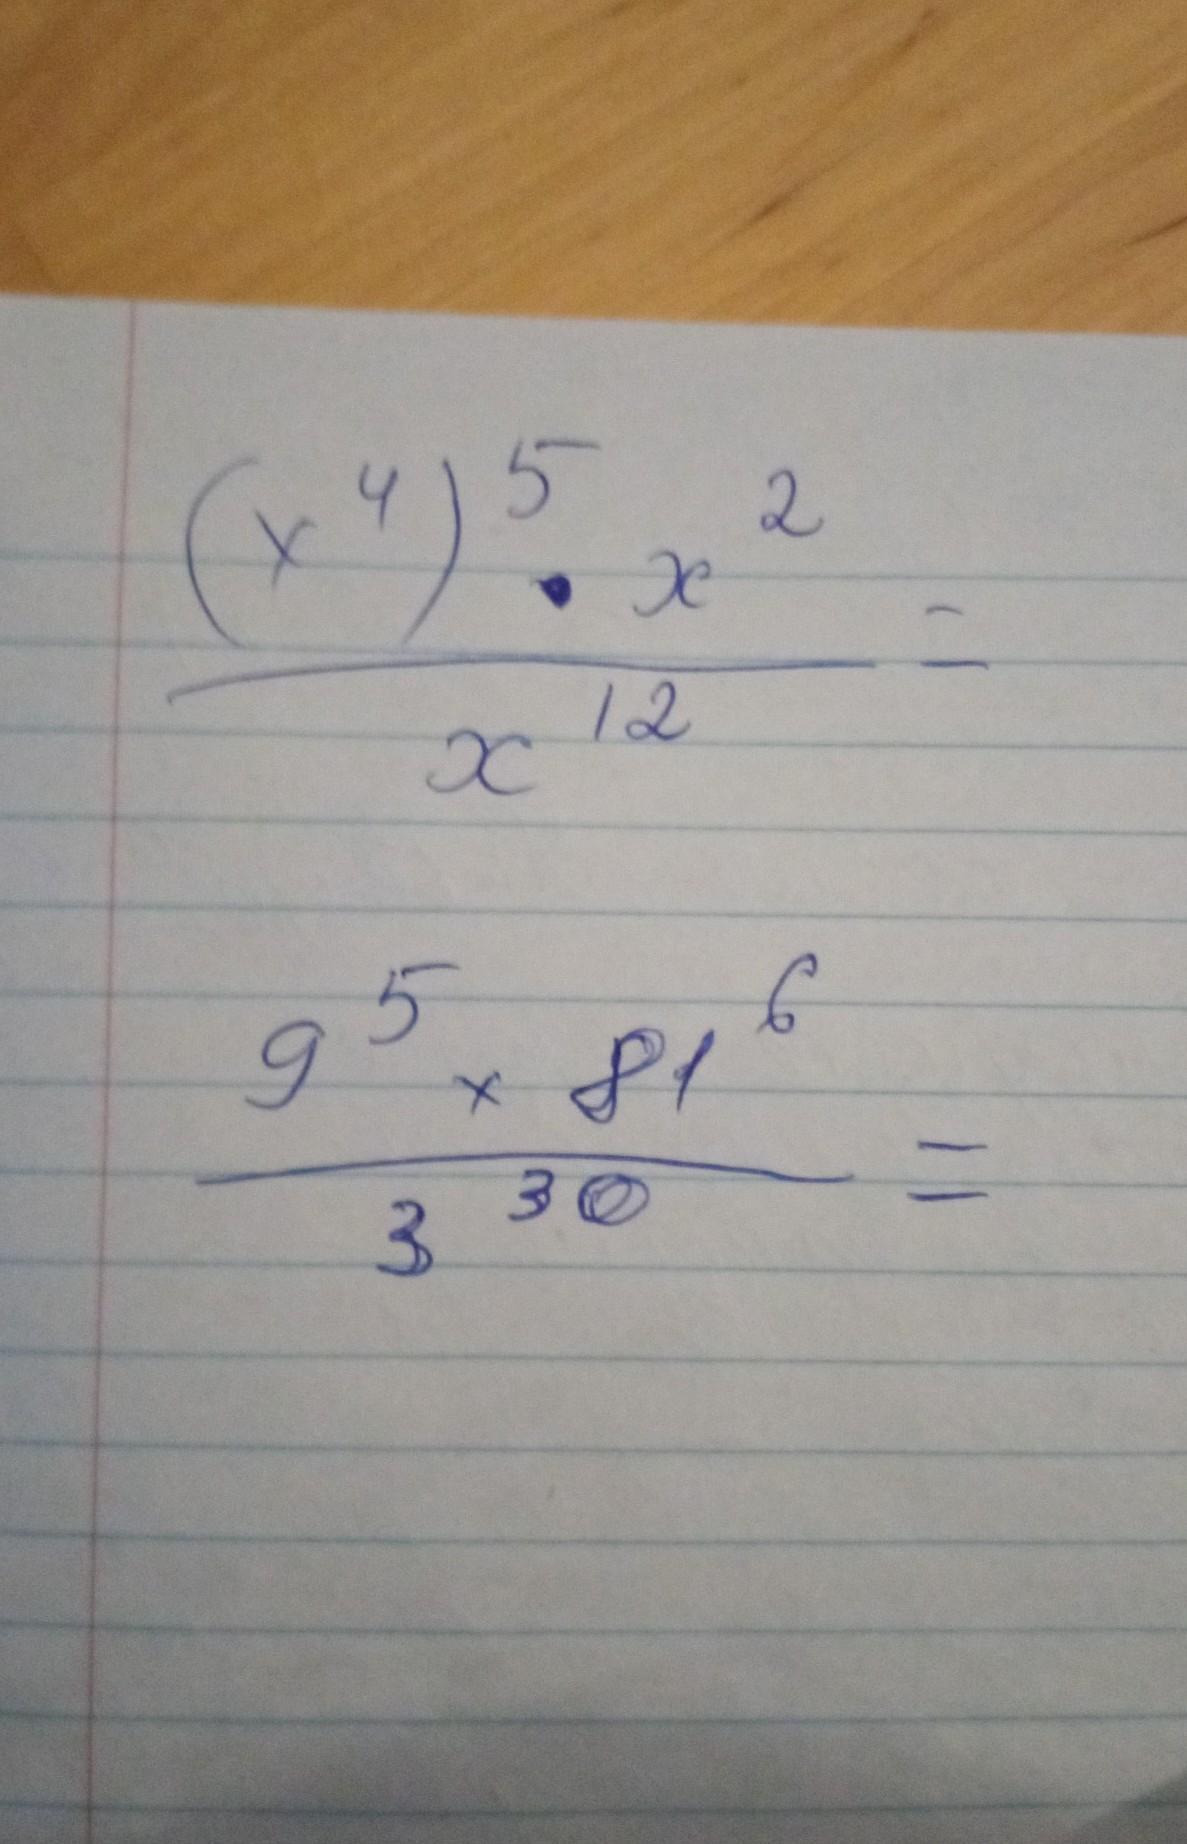 (x⁴)⁵ • x²
――――――― =
x¹²
9⁵ × 81⁶
――――――― =
3³⁰